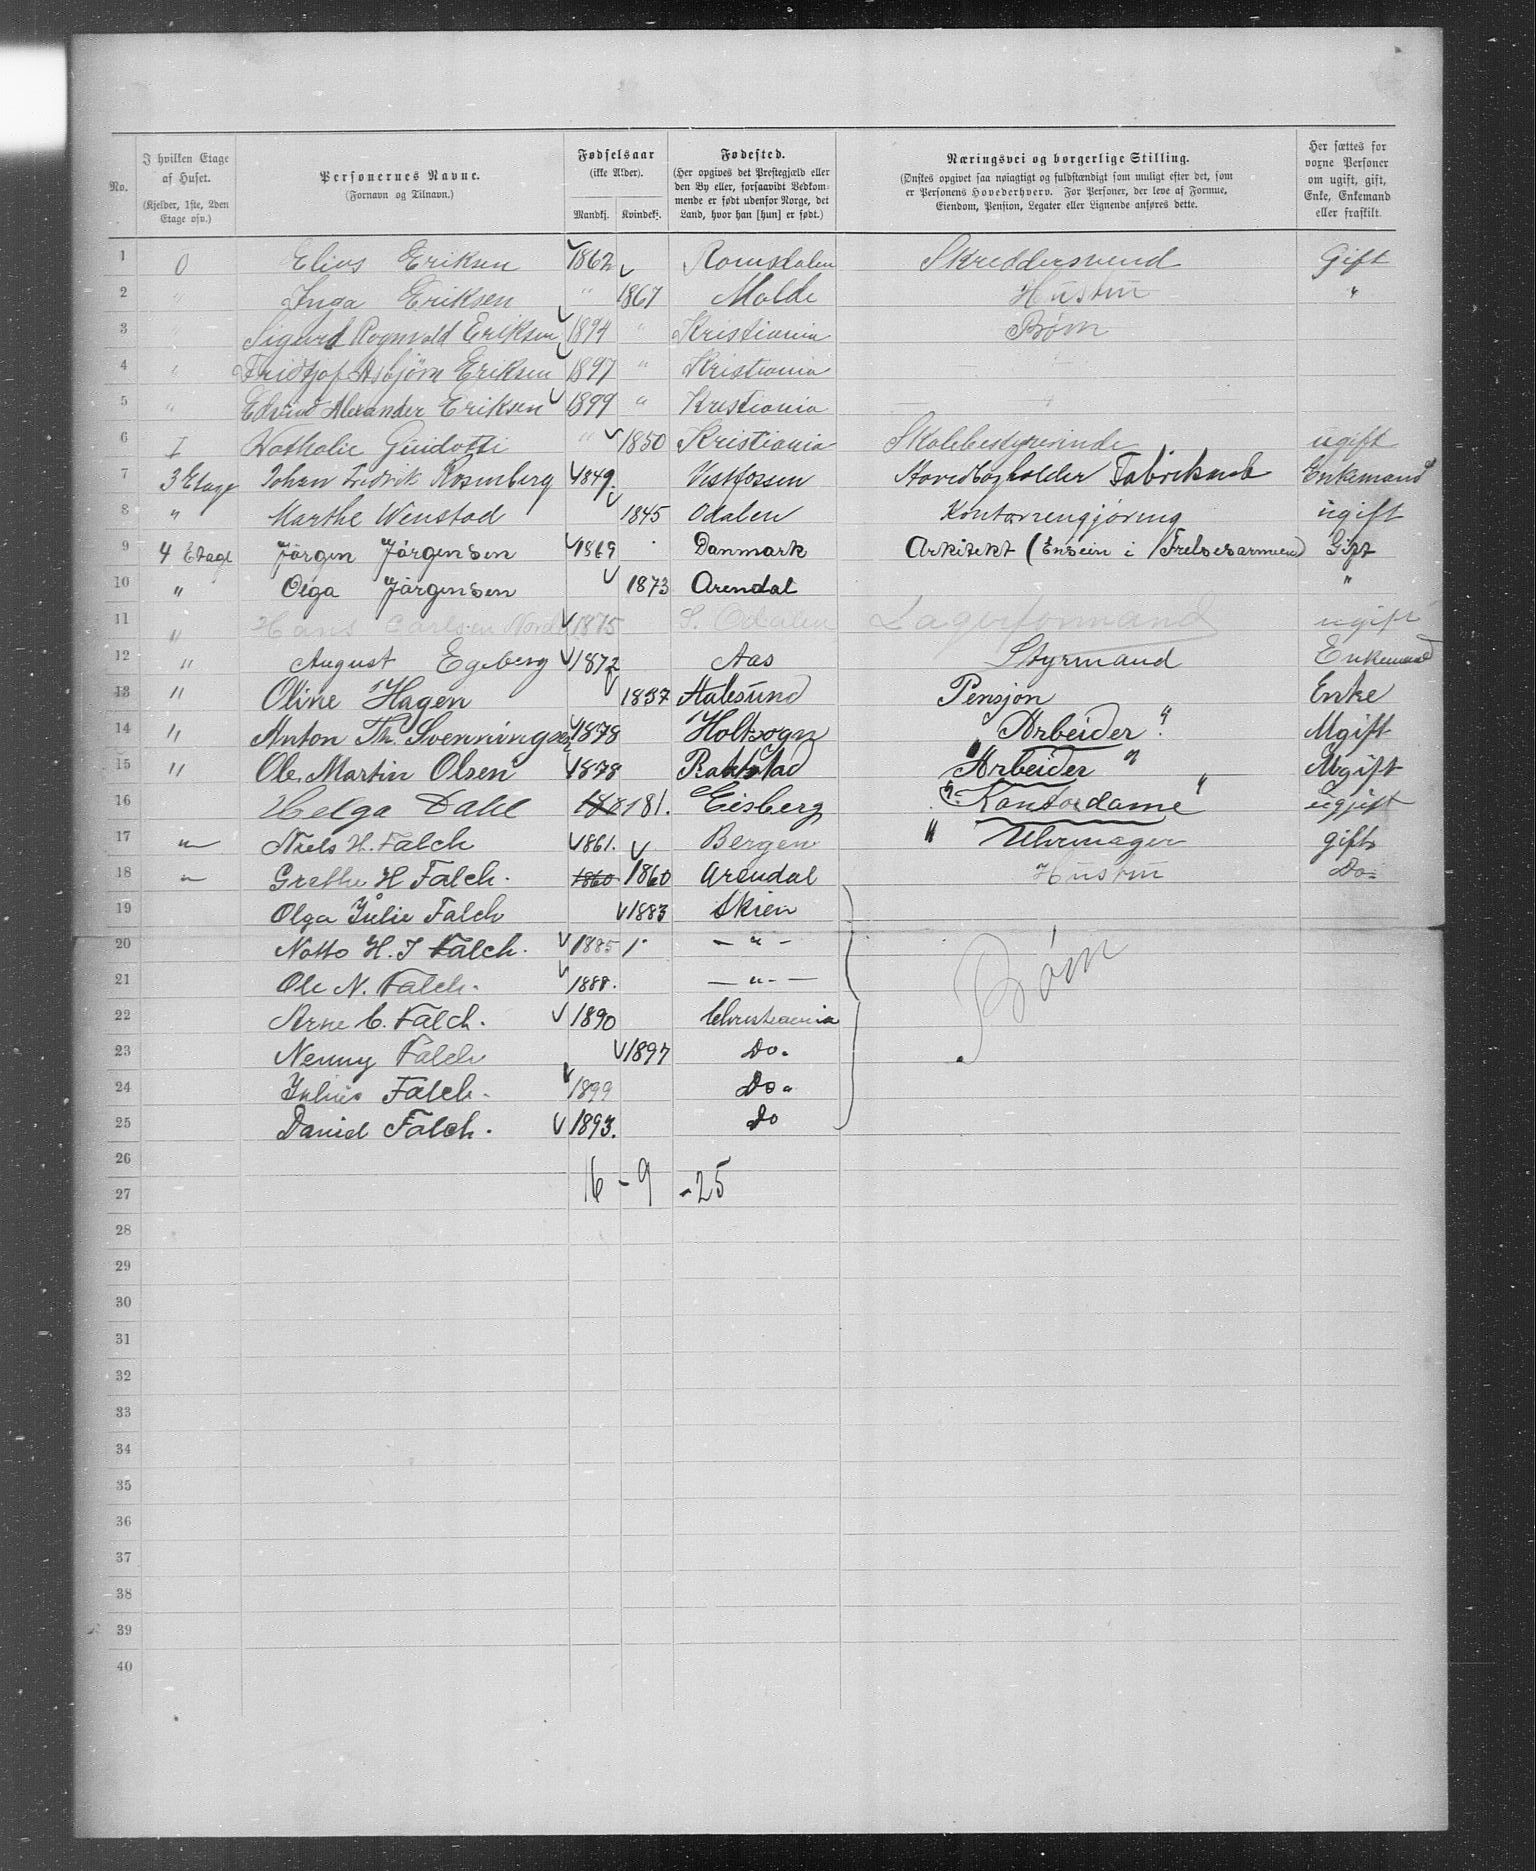 No. | I hvilken Etage af Huset. (Kjelder, 1ste, 2den Etage osv.) | Personernes Navne. (Fornavn og Tilnavn.) | Fødselsaar (ikke Alder). Mandkj. | Kvindekj. | Fødested. (Her opgives det Prestegjæld eller den By eller, forsaavidt Vedkommende er født udenfor Norge, det Land, hvor han [hun] er født.) | Næringsvei og borgerlige Stilling. (Ønskes opgivet saa nøiagtigt og fuldstændigt som muligt efter det, som er Personens Hovederhverv. For Personer, der leve af Formue, Eiendom, Pension, Legater eller Lignende anføres dette. | Her sættes for voxne Personer om ugift, gift, Enke, Enkemand eller fraskilt.
1 | 0 | Elius Eriksen | 1862 | | Romsdalen | Skreddersvend | Gift
2 | " | Inga Eriksen | " | 1867 | Molde | Hustru | "
3 | " | Sigurd Rognvald Eriksen | 1894 | " | Kristiania | Børn
4 | " | Fridtjof Asbjørn Eriksen | 1897 | " | Kristiania
5 | " | Edvind Alexander Eriksen | 1899 | " | Kristiania
6 | I | Nathalie Guidotti | " | 1850 | Kristiania | Skolebestyrerinde | ugift
7 | 3 Etage | Johan Fredrik Rosenberg | 1849. | | Vestfossen | Hovedbogholder | Enkemand
8 | " | Marthe Wenstad | | 1845 | Odalen | Kontorrengjøring | ugift
9 | 4 Etage | Jørgen Jørgensen | 1869 | | Danmark | Arkitekt ( i Frelsesarmeen) | Gift
10 | " | Olga Jørgensen | | 1873 | Arendal | | "
11 | " | Hans Carlsen Nord | 1875 | | S. Odalen | Lagerformand | ugift
12 | " | August Egeberg | 1872 | | Aas | Styrmand | Enkemand
13 | " | Oline Hagen | | 1837 | Aalesund | Pensjon | Enke
14 | " | Anton Th. Svenningsen | 1878 | | Holtsogn | Arbeider " | Ugift
15 | " | Ole Martin Olsen | 1878 | | Rakkestad | " Arbeider " | Ugift
16 | | Helga Dahl | | 181. | Eisberg | " Kontordame " | ugift
17 | " | Niels H. Falch | 1861. | | Bergen | " Uhrmager | gift
18 | " | Grethe H Falch. | 1860 | 1860 | Arendal | Hustru | Do
19 | | Olga Julie Falch | | 1883 | Skien
20 | | Notto H. J Falch. | 1885 | 1. | — " —
21 | | Ole N. Falch. | 1888. | | — " —
22 | | Arne C. Falch. | 1890 | | Christiania | Børn
23 | | Nenny Falch | | 1897 | Do.
24 | | Julius Falch. | 1899 | | Do.
25 | | Daniel Falch. | 1893. | | Do
26
27 | | | 16 | - 9 | - 25
28
29
30
31
32
33
34
35
36
37
38
39
40